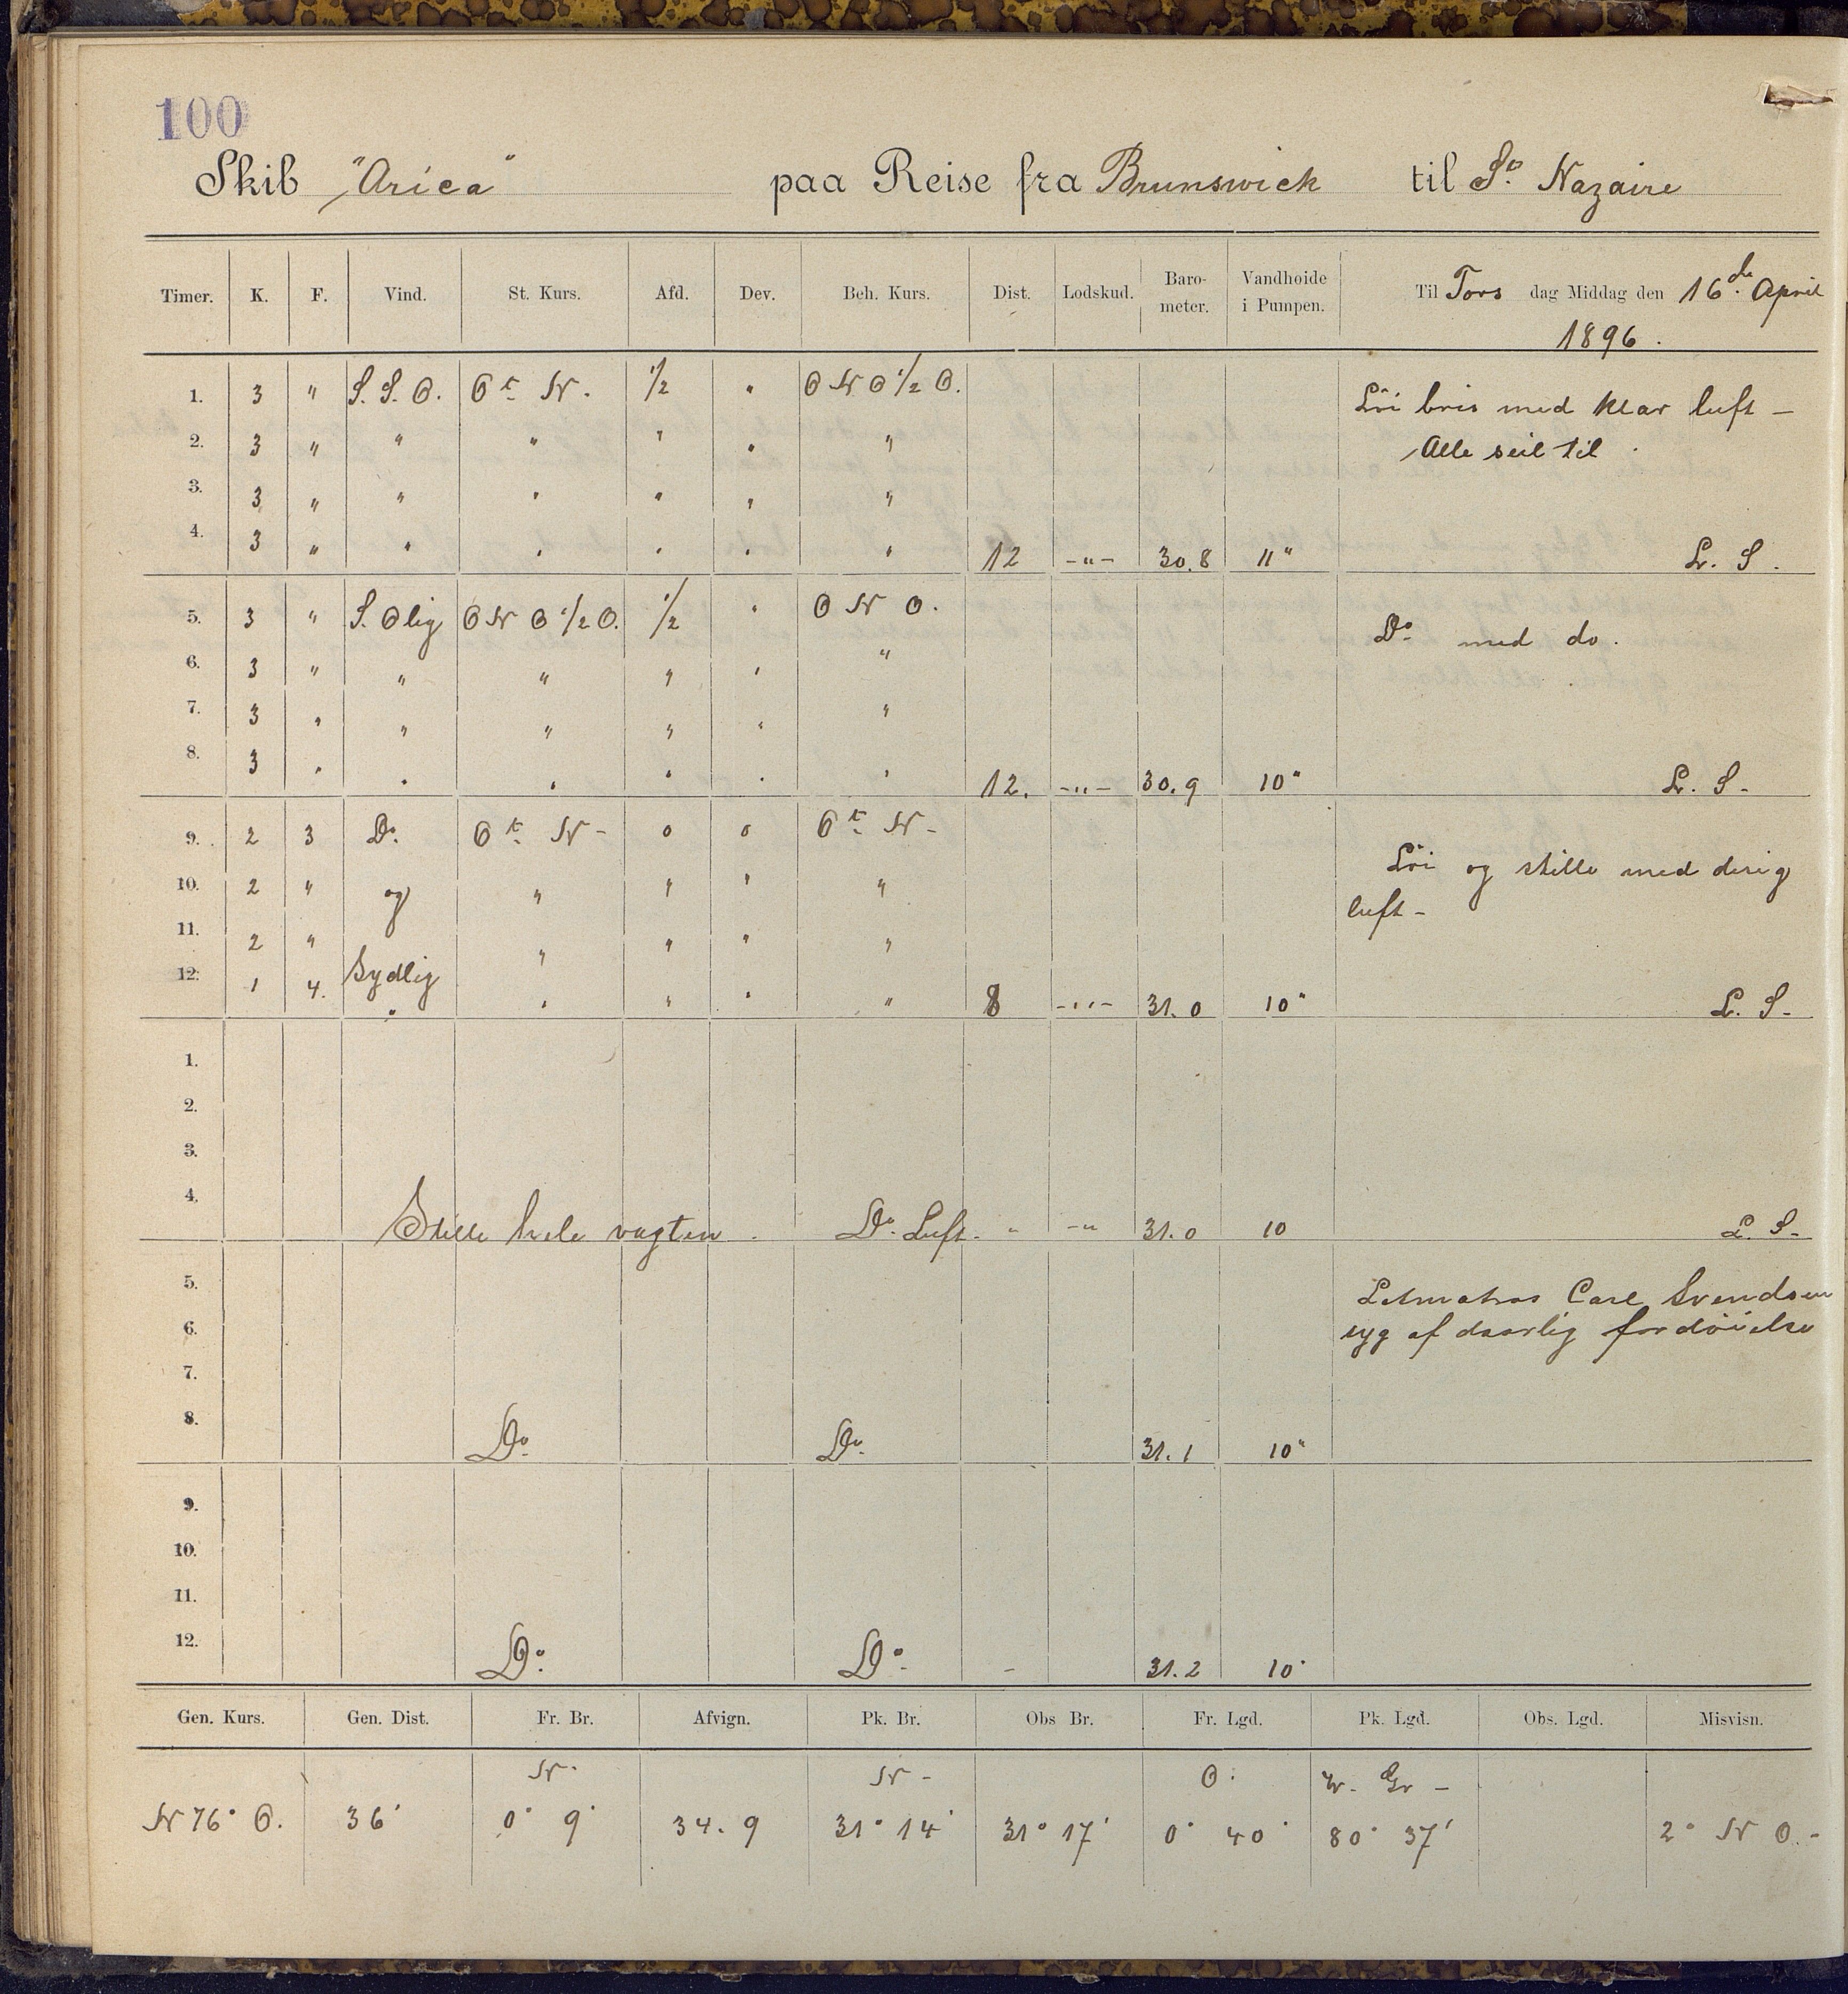 100
Skib "Arica" paa Reise fra Brunswick til St. Nazaire
Timer. K. F. Vind. St. Kurs. Afd. Dev. Beh. Kurs. Dist. Lodskud. Baro-meter. Vandhoide i Pumpen. Til Tors dag Middag den 16de April
1896.
1. 3 " S. S. O. O t. N. 1/2 " O N O 1/2 O. Löi bris med klar luft -
2. 3 " " " " " " Alle seil til
3. 3 " " " " " "
4. 3 " " " " " " 12 -"- 30.8 11" L. S.
5. 3 " S. Olig O N O 1/2 O. 1/2 " O N O. Do. med do.
6. 3 " " " " " "
7. 3 " " " " " "
8. 3 " " " " " " 12. -"- 30.9 10" L. S-
9. 2 3 Do. O t. N- o o O t. N- Löi og stille med disig
10. 2 " og " " " " luft-
11. 2 " " " " "
12. 1 4. Sydlig " " " " 8 -"- 31.0 10" L. S-
"
1.
2.
3.
4. Stille hele vagten. Do. Luft. " -" 31.0 10 L. S-
5. Letmatros Carl Svendsen
6. syg af daarlig fordöielse
7.
8. Do. Do. 31.1 10"
9.
10.
11.
12. Do. Do. - 31.2 10"
Gen. Kurs. Gen. Dist. Fr. Br. Afvign. Pk. Br. Obs Br. Fr. Lgd. Pk. Lgd. Obs. Lgd. Misvisn.
N. N- O. W. Gr-
N 76° O. 36' 0° 9' 34.9 31° 14' 31° 17' 0° 40' 80° 37' 2° N O.-